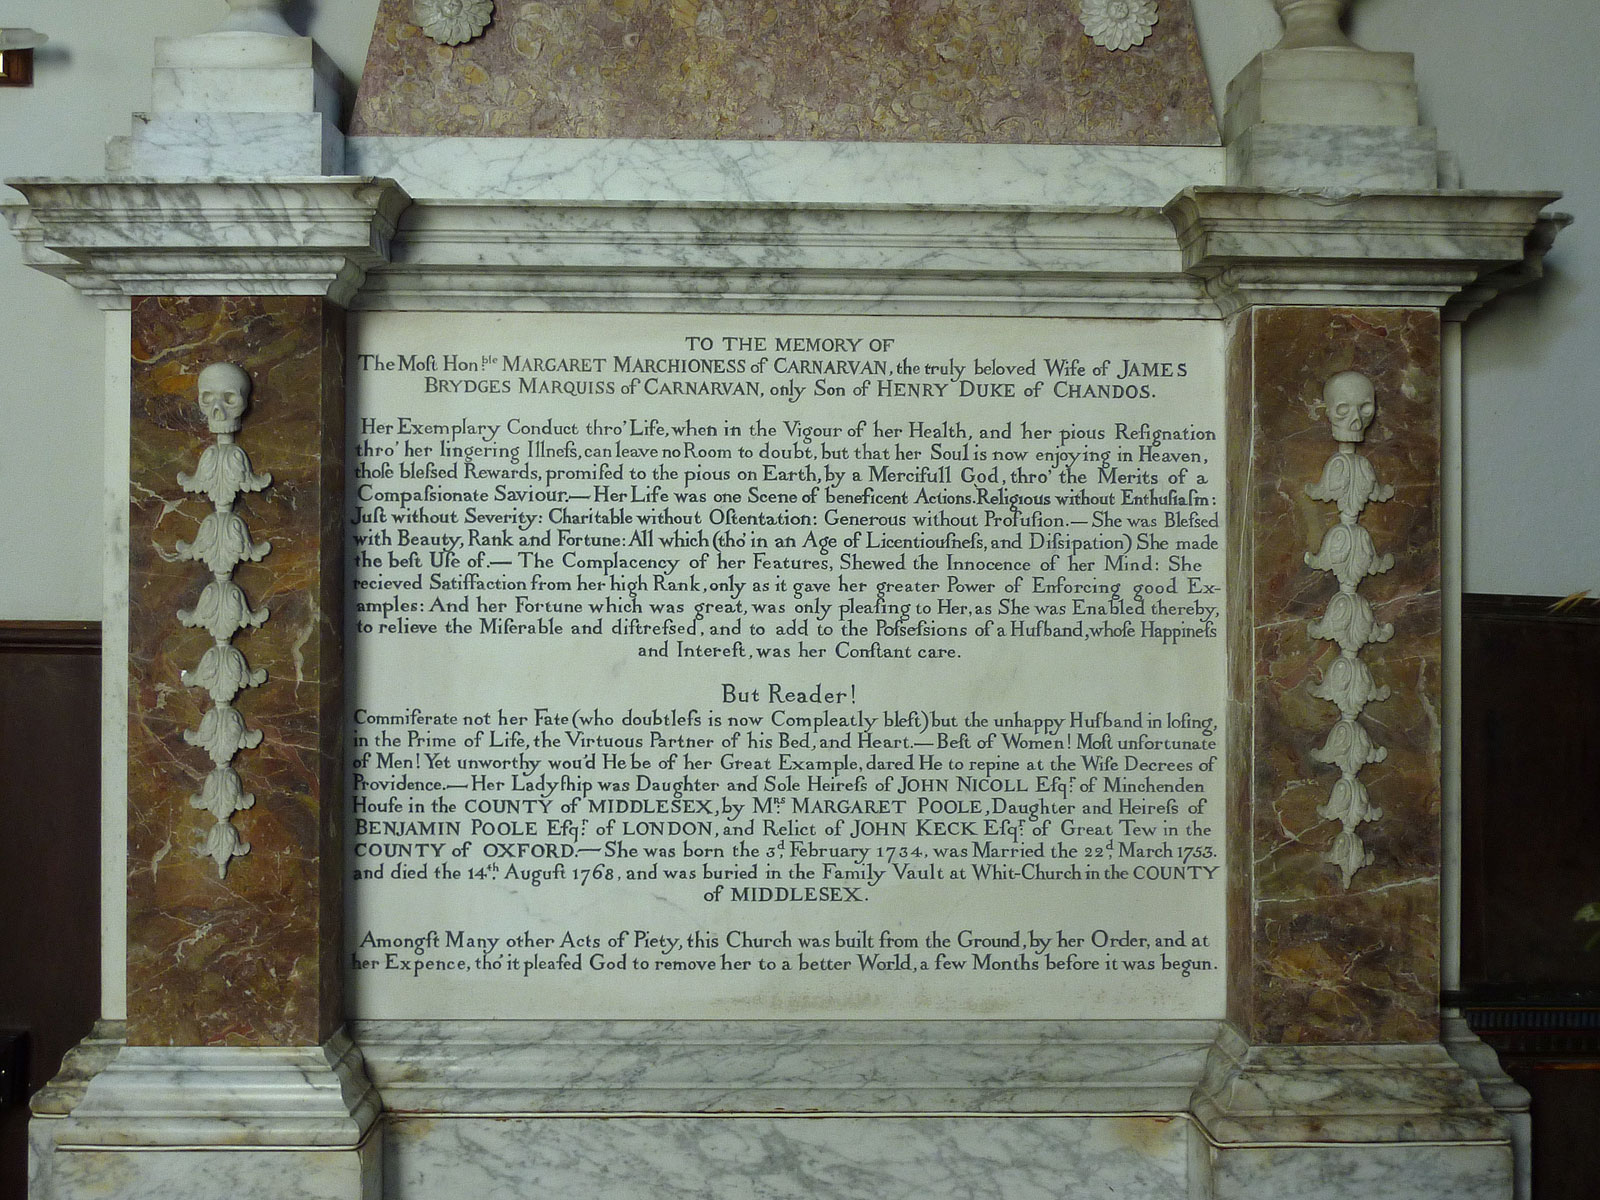 TO THE MEMORY OF
The Moſt Hon:ble MARGARET MARCHIONESS of CARNARVAN, the truly beloved Wife of JAMES
BRYDGES MARQUISS of CARNARVAN, only Son of HENRY DUKE of CHANDOS.
Her Exemplary Conduct thro' Life, when in the Vigour of her Health, and her pious Reſignation
thro' her lingering Illneſs, can leave no Room to doubt, but that her Soul is now enjoying in Heaven,
thoſe bleſsed Rewards, promiſed to the pious on Earth, by a Mercifull God, thro' the Merits of a
Compaſsionate Saviour.— Her Life was one Scene of beneficent Actions. Religious without Enthuſiaſm:
Juſt without Severity: Charitable without Oſtentation: Generous without Profuſion.— She was Bleſsed
with Beauty, Rank and Fortune: All which (tho' in an Age of Licentiouſneſs, and Diſsipation) She made
the beſt Uſe of.— The Complacency of her Features, Shewed the Innocence of her Mind: She
recieved Satiſfaction from her high Rank, only as it gave her greater Power of Enforcing good Ex-
amples: And her Fortune which was great, was only pleaſing to Her, as She was Enabled thereby,
to relieve the Miſerable and diſtreſsed, and to add to the Poſseſsions of a Huſband, whoſe Happineſs
and Intereſt, was her Conſtant care.
But Reader!
Commiſerate not her Fate (who doubtleſs is now Compleatly bleſt) but the unhappy Huſband in loſing,
in the Prime of Life, the Virtuous Partner of his Bed, and Heart.— Beſt of Women! Moſt unfortunate
of Men! Yet unworthy wou'd He be of her Great Example, dared He to repine at the Wiſe Decrees of
Providence.— Her Ladyſhip was Daughter and Sole Heireſs of JOHN NICOLL Eſqr. of Minchenden
Houſe in the COUNTY of MIDDLESEX, by Mrs. MARGARET POOLE, Daughter and Heireſs of
BENJAMIN POOLE Eſqr. of LONDON, and Relict of JOHN KECK Eſqr. of Great Tew in the
COUNTY of OXFORD.— She was born the 3d. February 1734, was Married the 22d. March 1753.
and died the 14th. Auguſt 1768, and was buried in the Family Vault at Whit-Church in the COUNTY
of MIDDLESEX.
Amongſt Many other Acts of Piety, this Church was built from the Ground, by her Order, and at
her Expence, tho' it pleaſed God to remove her to a better World, a few Months before it was begun.